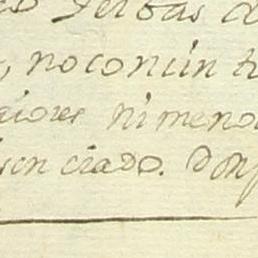 Yerbas d
, no con ún t
aiores ni meno
sen ciado. Don